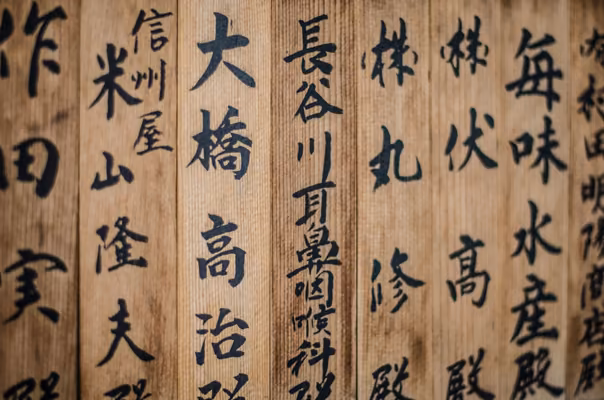 村田明陽商店殿
毎味水産殿
(株)伏高殿
(株)丸修殿
長谷川耳鼻咽喉科殿
大橋高治殿
信州屋
米山隆夫殿
作田実殿